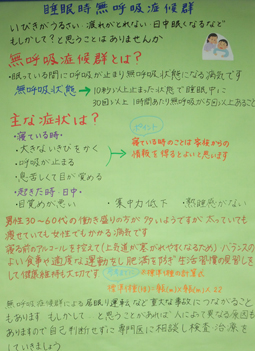 睡眠時無呼吸症候群
いびきがうるさい・疲れがとれない・日中眠くなるなど
もしかして?と思うことはありませんか
無呼吸症候群とは?
・眠っている間に呼吸が止まり無呼吸状態になる病気です
無呼吸状態 → 10秒以上止まった状態で睡眠中に
30回以上 1時間あたり無呼吸が5回以上あること
主な症状は?
ポイント
・寝ている時・
・大きないびきをかく
・呼吸が止まる
・息苦しくて目が覚める
寝ている時のことは家族からの
情報を得るとよいと思います
・起きた時・日中・
・目覚めが悪い ・集中力低下 ・熟睡感がない
男性30~60代の働き盛りの方が多いようですが太っていても
痩せていても女性でもかかる病気です
寝る前のアルコールを控えて(上気道が塞がれやすくなるため)バランスの
よい食事や適度な運動をし肥満をふせぎ生活習慣の見直しをし
して健康維持も大切です
標準体重の計算式
標準体重(kg)=身長(m)×身長(m)×22
無呼吸症候群による居眠り運転など重大な事故につながること
もあります もしかして…と思うことがあれば人によって異なる原因も
ありますので自己判断せずに専門医に相談し検査・治療を
していきましょう